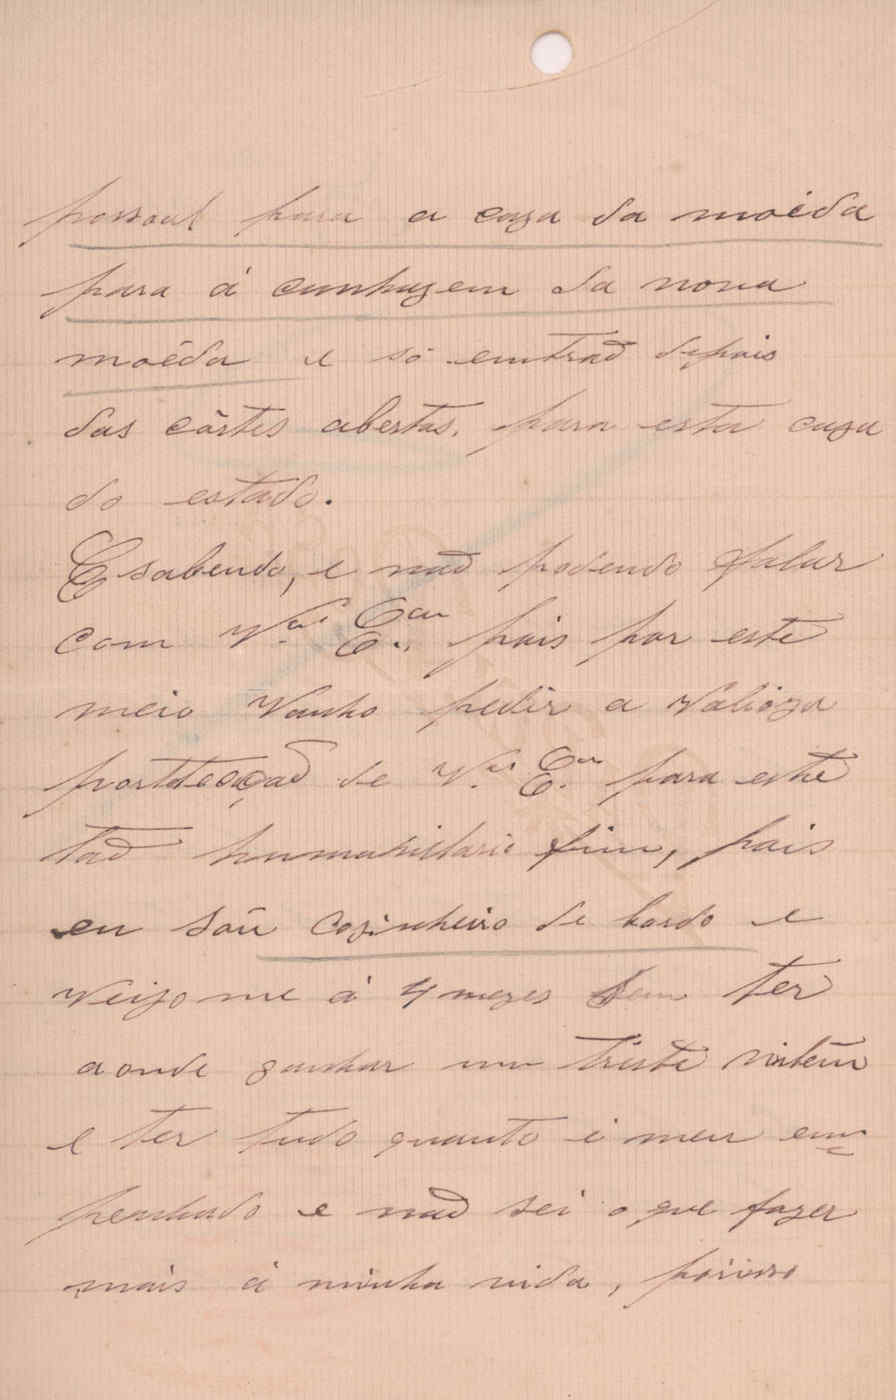 possoal para a caza da moéda
para á cunhagem da nova
moéda e só emtrão depois
das côrtes abertas, para esta caza
do estado.
E sabendo, e não podendo falar
com V.ª Ex.ª, pois por este
meio Vanho pedir a Valioza
de V.ª Ex.ª para este
tão fim, pois
eu soũ cozinheiro de bordo e
Veijo me á 4 mezes sem ter
aonde ganhar um triste vintẽm
e ter tudo quanto é meu em=
penhado e não sei o que fazer
mais á minha vida, porisso